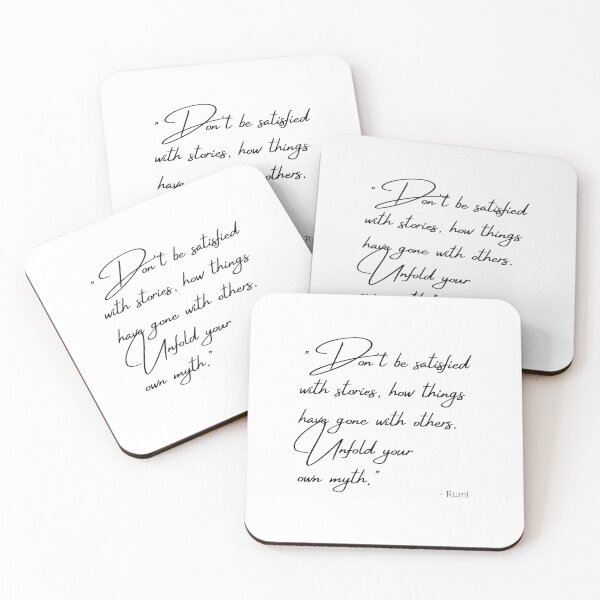 "Don't be satisfied
with stories, how things
have others.
Ru
"Don't be satisfied
with stories, how things
have gone with others.
Unfold your
"Don't be satisfied
with stories, how things
have gone with others.
Unfold your
own myth."
"Don't be satisfied
with stories, how things
have gone with others.
Unfold your
own myth."
- Rumi